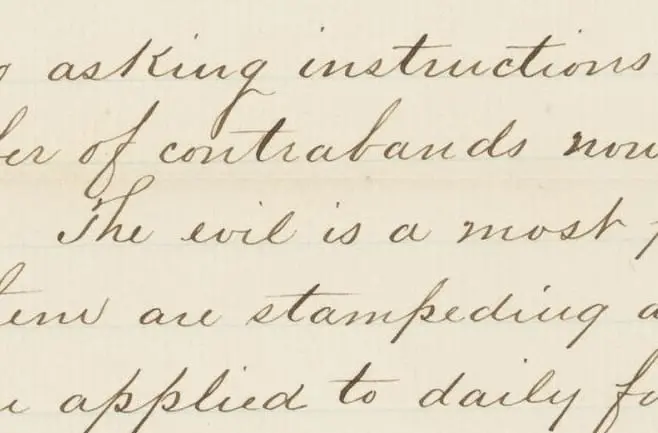 asking instructions
of contrabands now
The evil is a most
are stampeding
applied to daily